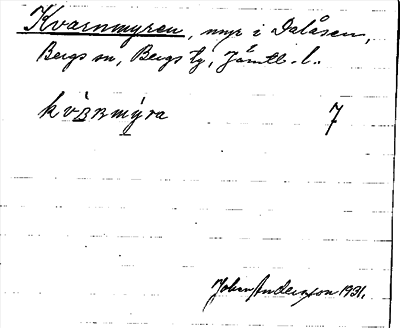 Kvarnmyren, myr i Dalåsen,
Bergs sn, Bergs tg, Jämtl. l.
kvàrnmýra 7
Johan Anderson 1931.